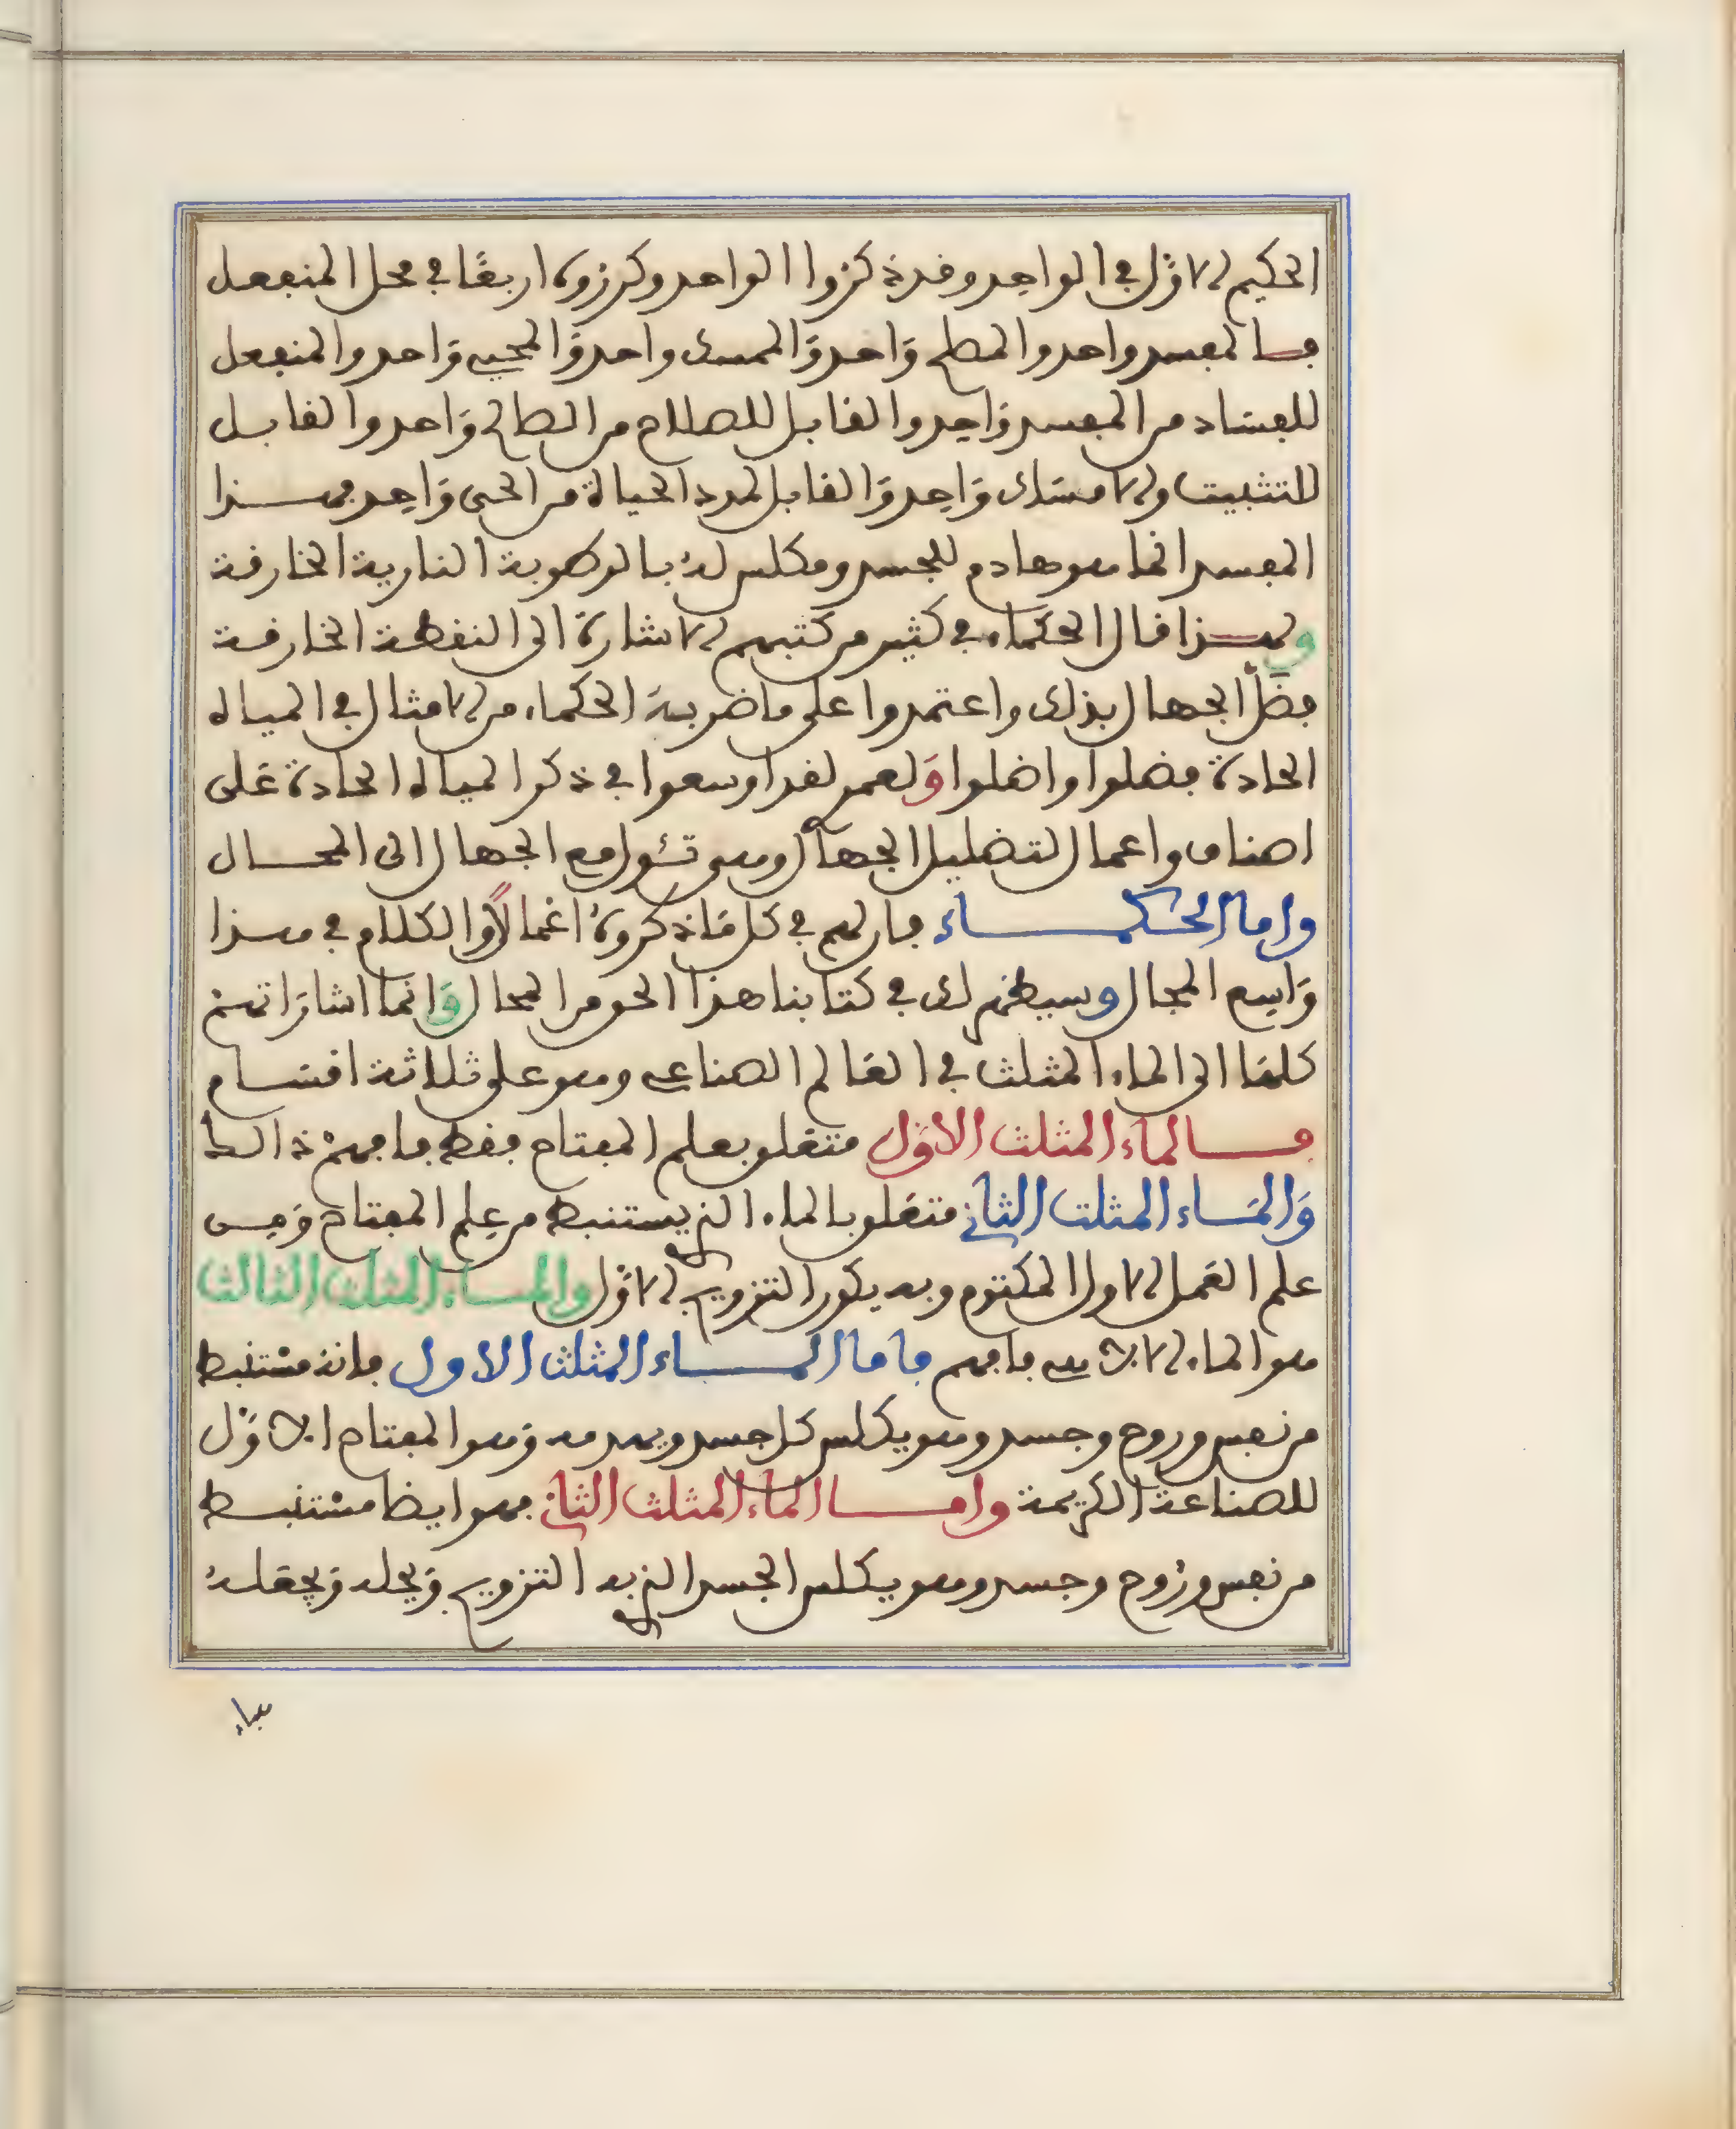 الحكيم الاوّل في الواحد وقد ذكروا الواحد وكرروه اربعًا في محل المنفعل
فالمفسد واحد والمصلح وَاحد وَالممسك واحد وَالمحيي وَاحد والمنفعل
للفسَاد من المفسد وَاحِد والقابل للصلاح من الصالح وَاحد والقابل
للتثبيت والامسَاك وَاحِد وَالقابل لمدد الحياة من الحى وَاحِد فهذا
المفسد انما هو هادم للجسد ومكلس لهُ بالرطوبة النارية الخارقة
ولهذا قال الحكماء في كثير من كتبهم الاشارة الى النقطة الخارقة
فضَلّ الجهال بذلك واعتمدوا على ما ضربه الحكماء من الامثال في المياه
الحادة فضلوا واضلوا وَلعمر لقد اوسعوا في ذكر المياه الحادة عَلى
اصناف واعمال لتضليل الجهال وهى تئول مع الجهال الى المحال
واما الحكماء فان لهم في كل مَا ذكروهُ اعْمالًا والكلام في هذا
وَاسِع المجال وسيظهر لك في كتابنا هذا الحق من المحال وَانما اشارَاتهم
كلهَا الى الماء المثلث في العَالم الصناعي وهو على ثلاثة اقسَام
فالماء المثلث الاوّل متعَلق بعلم المفتاح فقط فافهمْ ذالك
وَالمَاء المثلث الثاني متعَلق بالماء الذي يستنبط من عِلم المفتاح وَهِى
علم العَمل الاول المكتوم وبه يكون التزويج الاوّل والماء المثلث الثالث
هو الماء الالاهي فافهم فاما الماء المثلث الاول فانه مسْتنبط
من نفس وروح وجسد وهو يكلس كل جسد ويهدمه وَهو المفتاح الاوّل
للصناعة الكريمة واما الماء المثلث الثاني فهو ايضا مسْتنبط
من نفس ورُوح وجسد وهو يكلس الجسد الذي به التزويج وَيحله وَيجعَلهُ
هباء